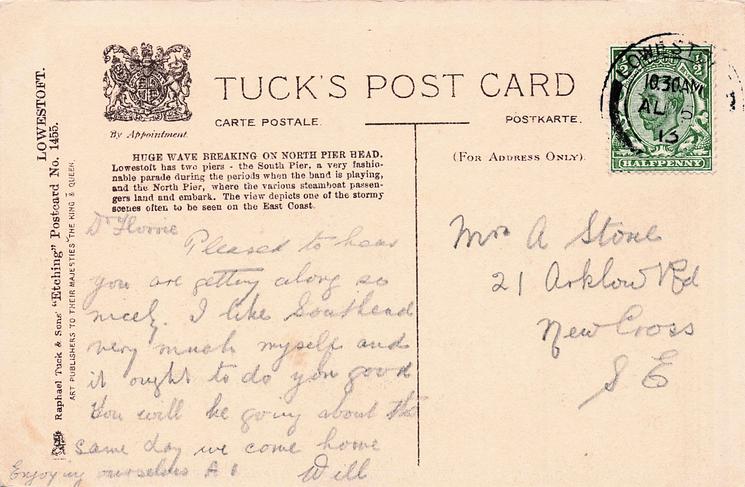 TUCK'S POST CARD
By Appointment.
CARTE POSTALE.
POSTKARTE.
(FOR ADDRESS ONLY).
HUGE WAVE BREAKING ON NORTH PIER HEAD.
Lowestoft has two piers - the South Pier, a very fashio-
nable parade during the periods when the band is playing,
and the North Pier, where the various steamboat passen-
gers land and embark. The view depicts one of the stormy
scenes often to be seen on the East Coast.
LOWESTOFT.
Raphael Tuck & Sons' "Etching" Postcard No. 1455.
ART PUBLISHERS TO THEIR MAJESTIES THE KING & QUEEN.
Dr Florrie
Pleased to hear
you are getting along so
nicely. I like Southend
very much myself and
it ought to do you good
You will be going about the
same day we come home
Enjoying ourselves A 1 Will
Mrs A Stone
21 Arklow Rd
New Cross
S E
LOWEST
10.30AM
AU
13
HALFPENNY